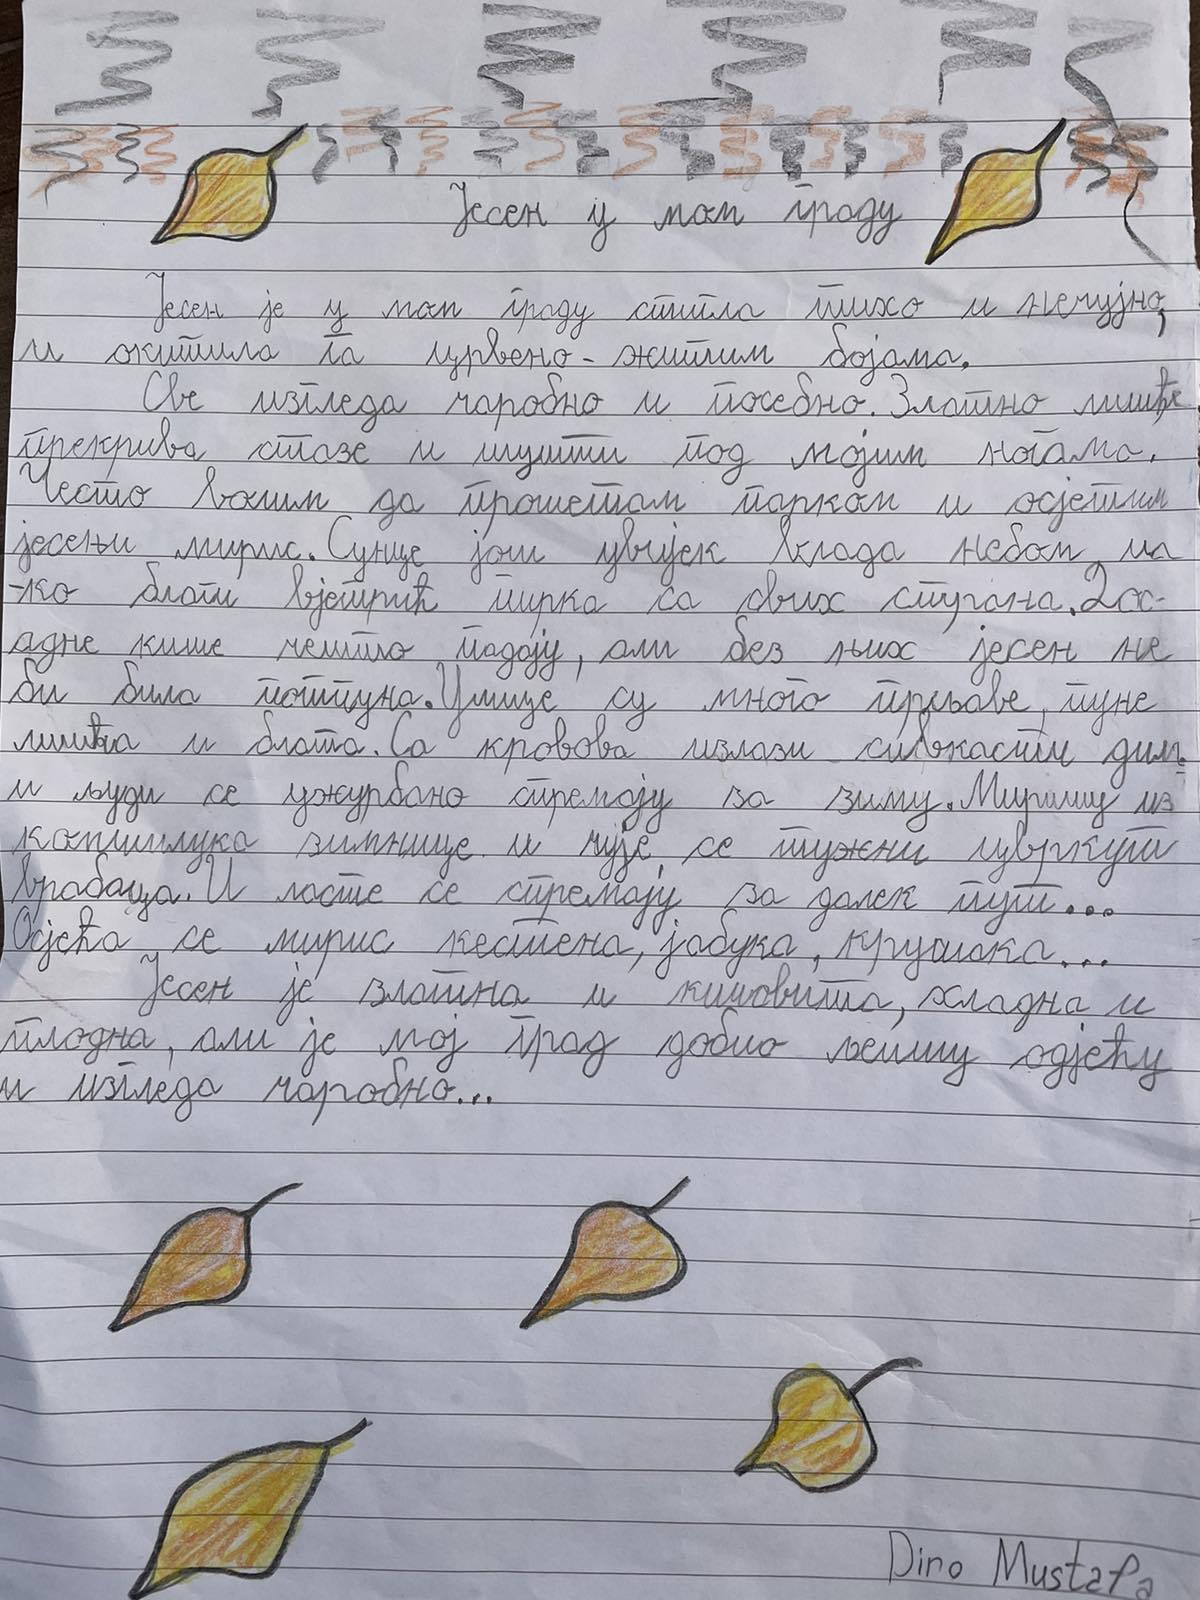 Јесен у мом граду
Јесен је у мом граду стигла тихо и нечујно,
и окитила га црвено-житим бојама.
Све изгледа чаробно и посебно. Златно лишће
прекрива стазе и шушти под мојим ногама.
Често волим да прошетам парком и осјетим
јесењи мирис. Сунце још увијек влада небом, иа
-ко благи вјетрић пирка са свих страна. Дос-
адне кише често падају, али без њих јесен не
би била потпуна. Улице су много прљаве, пуне
лишћа и блата. Са кровова излази сивкасти дим
и људи се ужурбано спремају за зиму. Миришу из
комшилука зимнице и чује се тужни цвркут
врабаца. И ласте се спремају за далек пут...
Осјећа се мирис кестена, јабука, крушака...
Јесен је златна и кишовита, хладна и
плодна, али је мој град добио љепшу одјећу
и изгледа чаробно...
Dino Mustafa